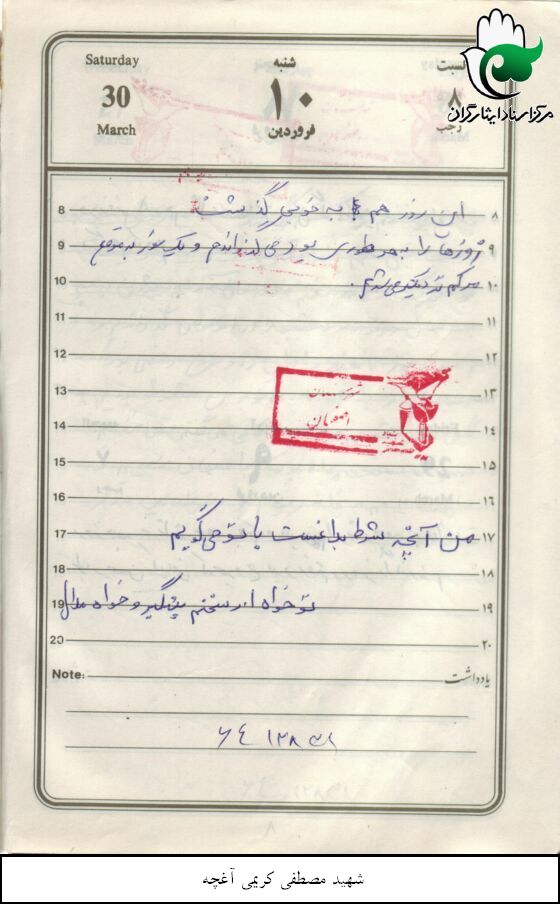 مرکز اسناد ایثارگران
Saturday
30
March
شنبه
۱۰
فروردین
السبت
۸
رجب
8 این روز هم به خوبی گذشت ۸
9 روزها را به هر طوری بود می گذراندم و یک روز به موقع ۹
10 مرگم نزدیکتر می شدم . ۱۰
11 ۱۱
12 ۱۲
13 ۱۳
اصفهان
14 ۱۴
15 ۱۵
16 ۱۶
17 من آنچه شرط بلاغست با تو می گویم ۱۷
18 ۱۸
19 تو خواه از سخنم پند گیر و خواه ملال ۱۹
20 ۲۰
Note: یادداشت
شهید مصطفی کریمی آغچه